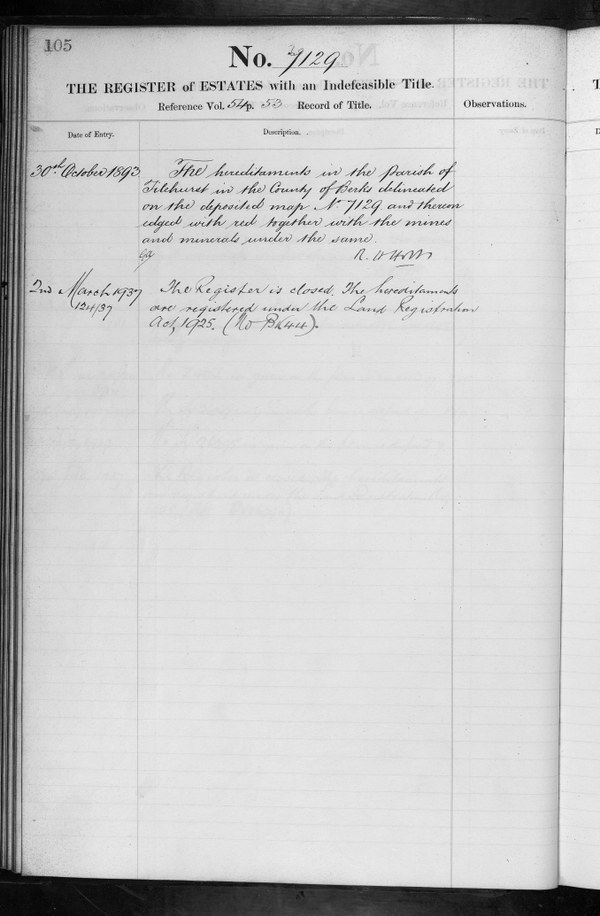 105
No. 7129
THE REGISTER of ESTATES with an Indefeasible Title.
Reference Vol. 54 p. 53 Record of Title.
Observations.
Date of Entry.
Description.
30th October 1893
The hereditaments in the parish of
Tilehurst in the County of Berks delineated
on the deposited map No 7129 and thereon
edged with red together with the mines
and minerals under the same.
2nd March 1937
124/37
The Register is closed. The hereditaments
are registered under the Land Registration
Act, 1925. (No Bk44).